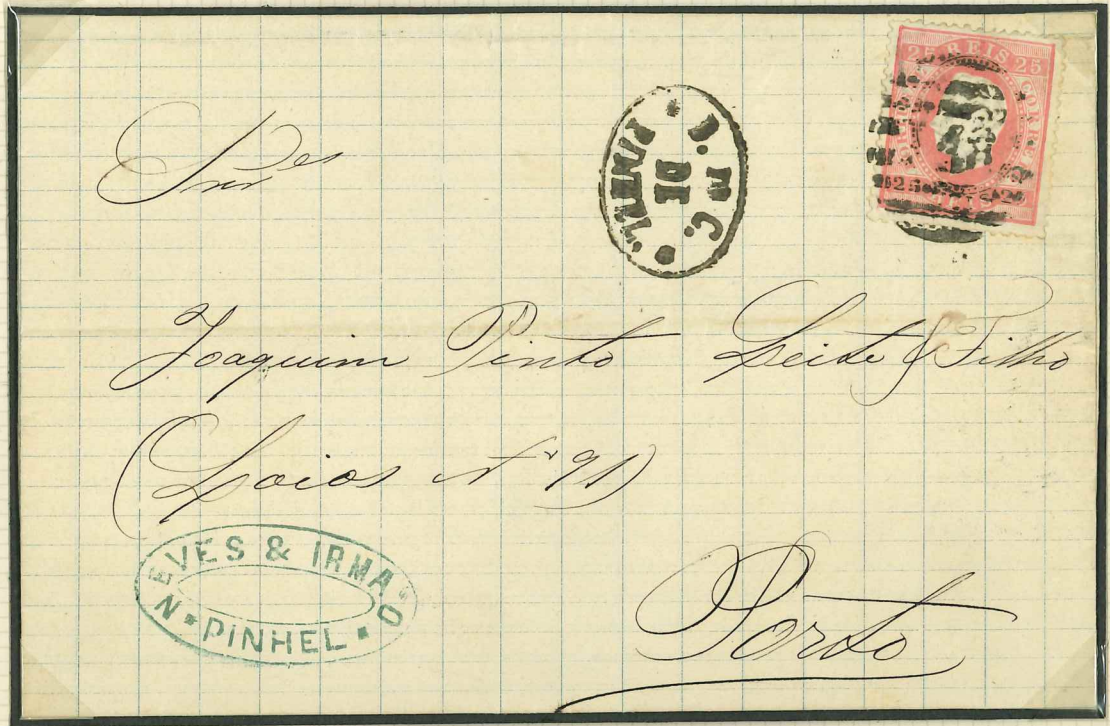 Snres
D. M C.
DE
PINHEL
25 REIS 25
CORREIO
Joaquim Pinto Leite & Filho
(Loios Nº 91)
NEVES & IRMAÕ
PINHEL
Porto